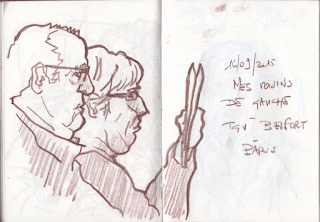 16/09/2015
MES VOISINS
DE GAUCHE
-
TGV - BELFORT
-
PARIS